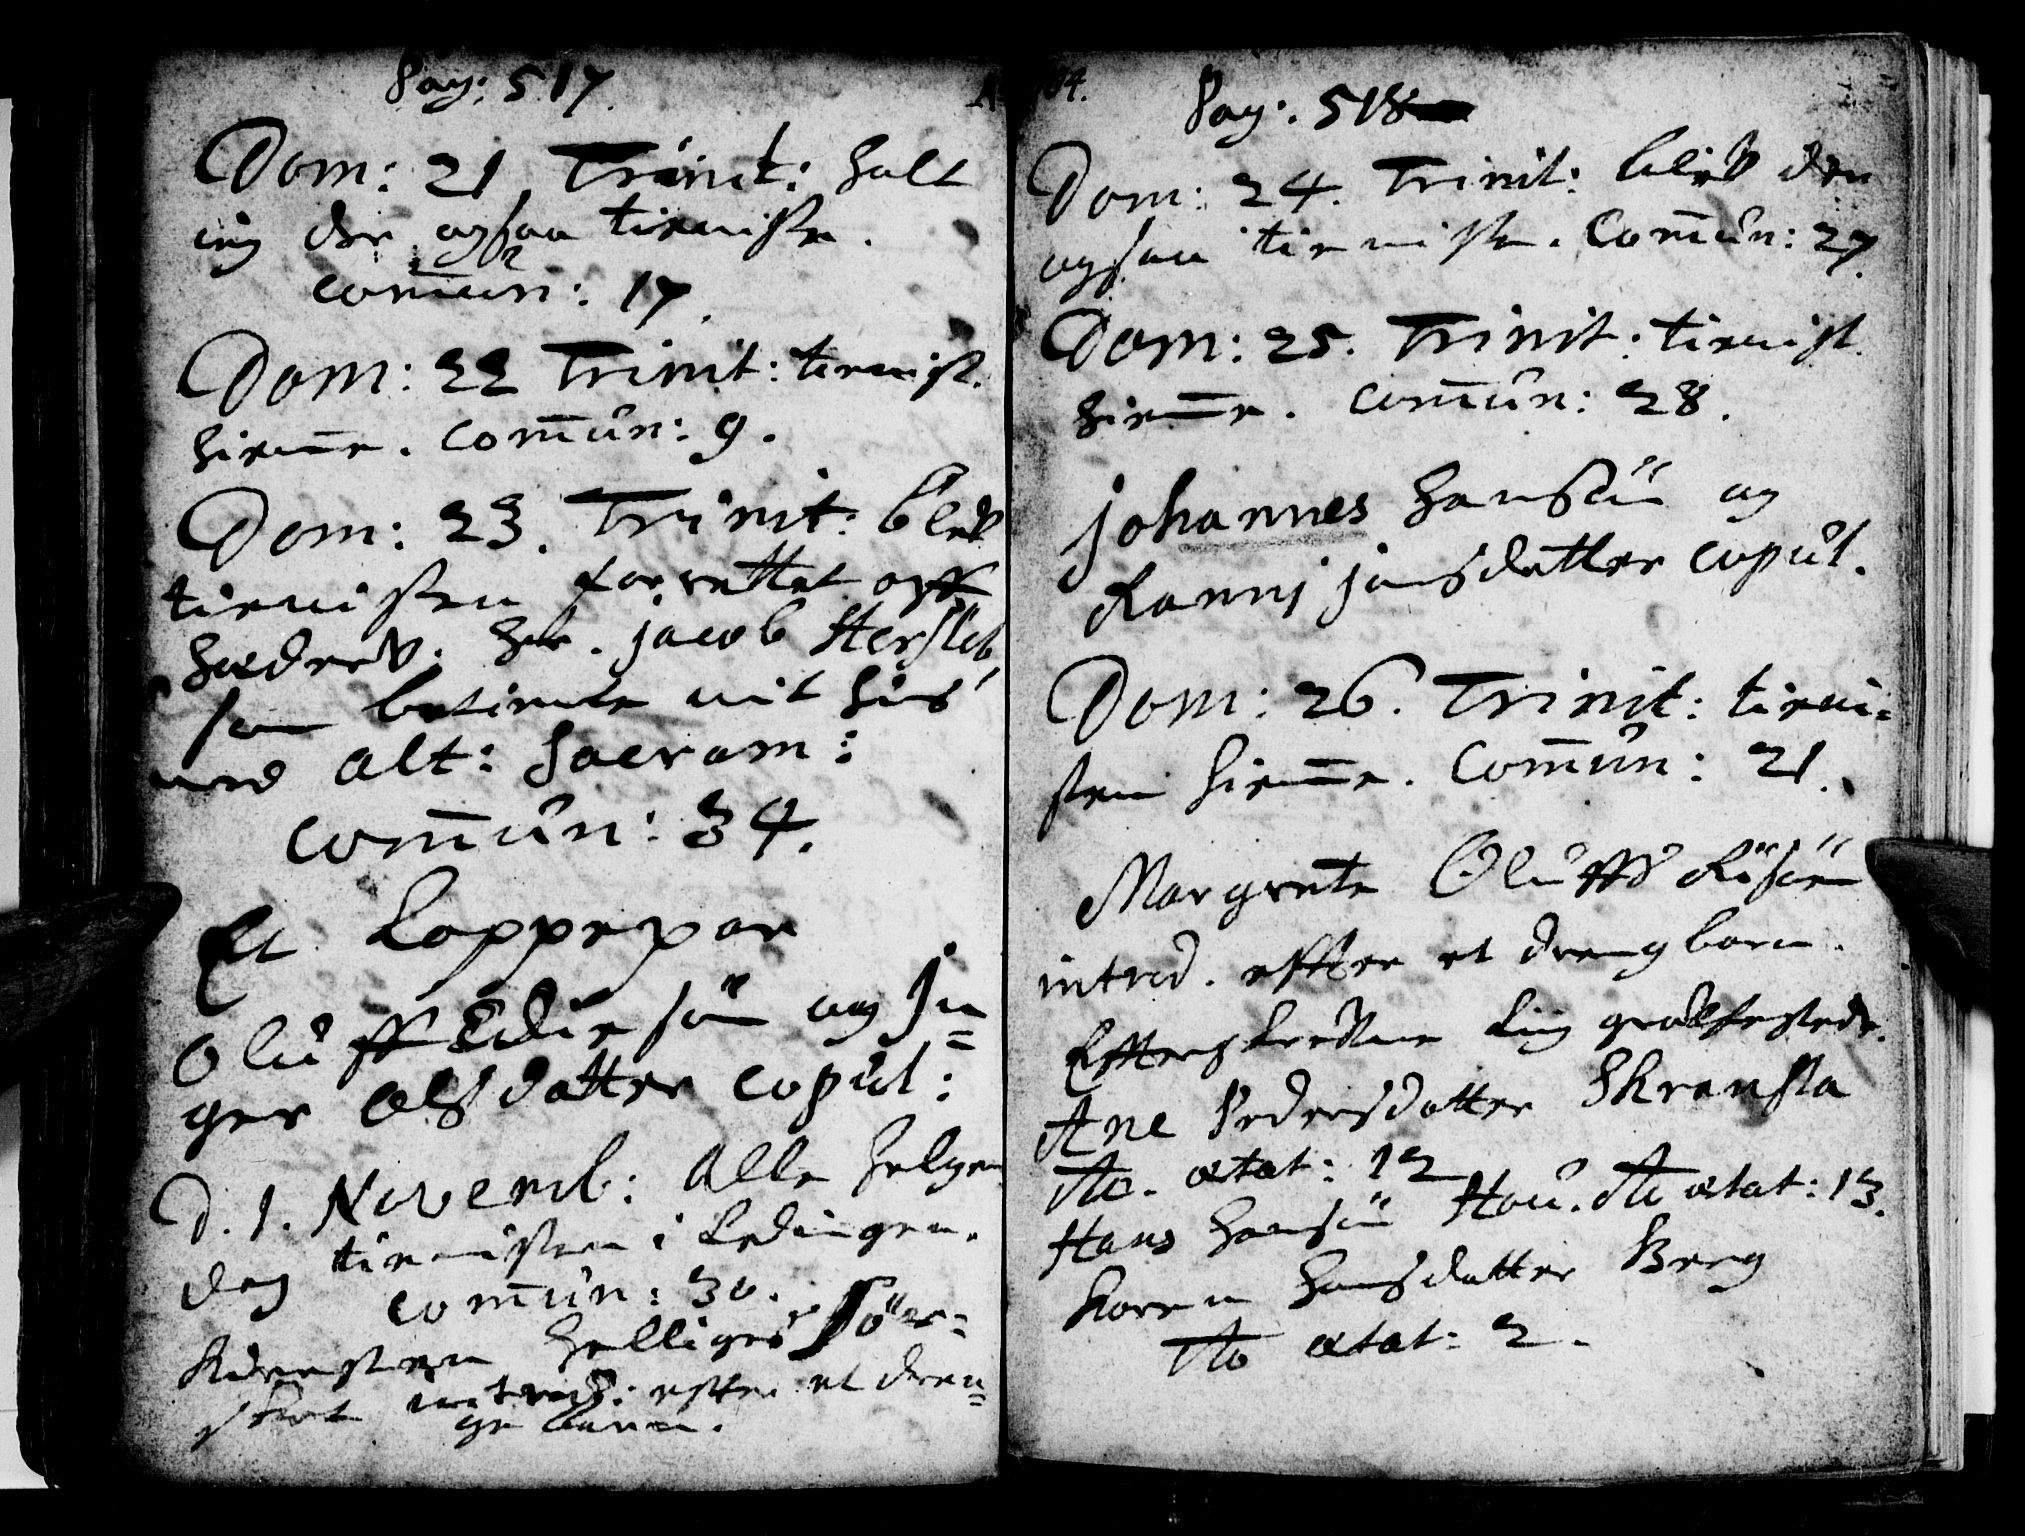 Pag: 517.
Dom: 21 Trinit: holt
ieg der ogsaa tienisten.
Com̅un: 17.
Dom: 22 Trinit: tienist.
hiem̅e. Com̅un: 9.
Dom: 23. Trinit: blev
tienisten forrettet off
hæderv. Hr. Jacob Hersleb,
som betiente mit hus
med Alt: Sacram:
Com̅un: 34.
Et Koppepar
Oluff Edisøn og In=
ger Olsdatter copul:
D. 1. Novemb: Alle Helgen
dag tienisten i Lødingen.
Com̅un: 30.
Kirsten Helliges Sør=
introd: effter et dren=
ge barn.
Pag: 518
Dom: 24. Trinit: blev den
ogsaa tienisten. Com̅un: 27.
Dom: 25. Trinit: tienist.
hiem̅e. Com̅un: 28.
Johannes Hansøn og
Ranni Jonsdatter copul.
Dom: 26. Trinit: tieni=
sten hiem̅e. Com̅un: 21.
Margrete Oluffs Risøen
introd. effter et drengbarn.
Effterskrevne Liig grabfestede.
Ane Pedersdatter Skrensta
Ao. ætat: 12
Hans Hansøn Hou. Ao ætat: 13.
Karen Hansdatter Berg
Ao ætat: 2.